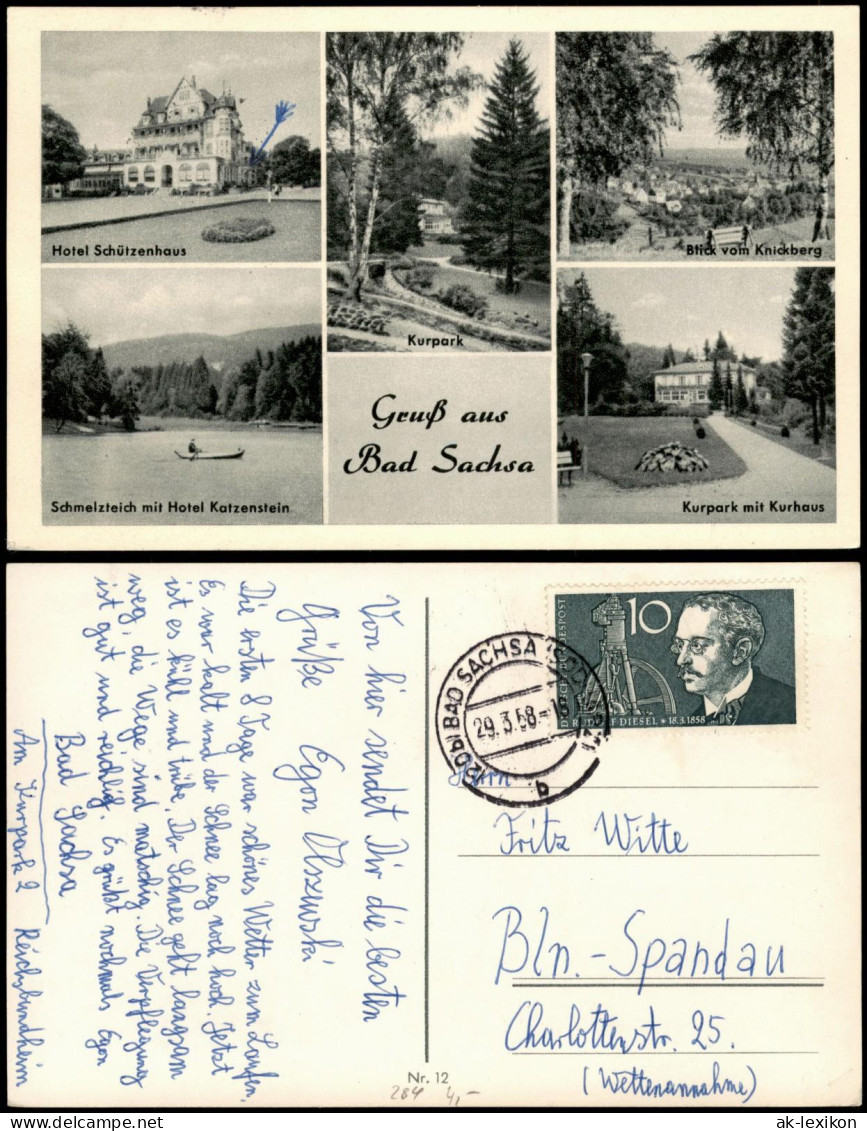 Hotel Schützenhaus
Kurpark
Blick vom Knickberg
Schmelzteich mit Hotel Katzenstein
Gruß aus
Bad Sachsa
Kurpark mit Kurhaus
Von hier sendet Dir die besten
Grüße Egon Olszewski
Die ersten 8 Tage war schönes Wetter zum Laufen,
Es war kalt und der Schnee lag noch hoch. Jetzt
ist es kühl und trübe. Der Schnee geht langsam
weg, die Wege sind matschig. Die Verpflegung
ist gut und reichlig. Es grüßt nochmals Egon
Bad Sachsa
Am Kurpark 2 Reichsbundheim
DEUTSCHE BUNDESPOST
10
RUDOLF DIESEL * 18.3.1858
BAD SACHSA
29.3.58
b
Herrn
Fritz Witte
Bln.-Spandau
Charlottenstr. 25.
(Wettenannahme)
Nr. 12
284 4,-
ak-lexikon